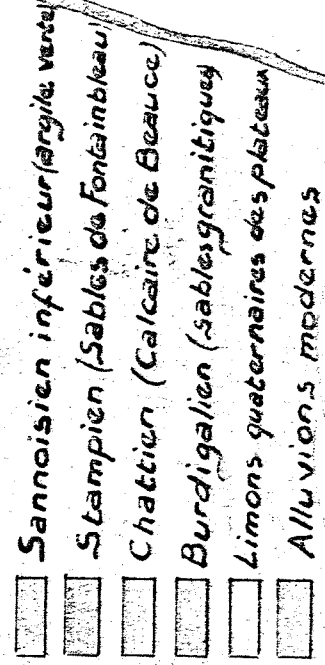 Sannoisien inférieur (argile verte)
Stampien (Sables de Fontainbleau)
Chattien (Calcaire de Beauce)
Burdigalien (sables granitiques)
Limons quaternaires des plateaux
Alluvions modernes